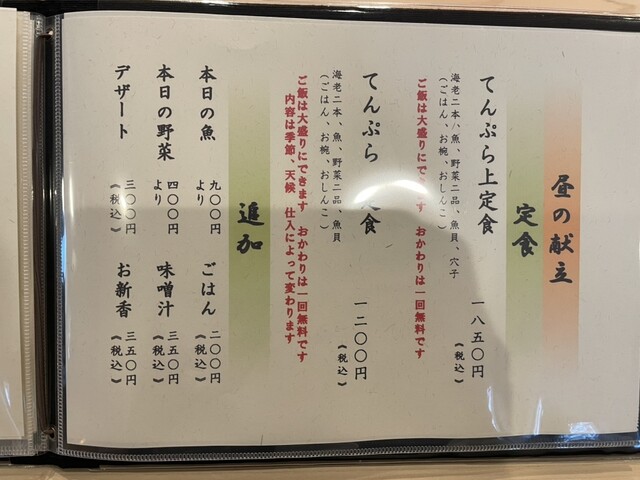 昼の献立
定食
てんぷら上定食
海老二本、魚、野菜二品、魚貝、穴子
(ごはん、お椀、おしんこ)
一八五〇円
(税込)
ご飯は大盛りにできます おかわりは一回無料です
てんぷら 食
海老二本、魚、野菜二品、魚貝
(ごはん、お椀、おしんこ)
一二〇〇円
(税込)
ご飯は大盛りにできます おかわりは一回無料です
内容は季節、天候 仕入によって変わります
追加
本日の魚 九〇〇円
より
本日の野菜 四〇〇円
より
デザート 三〇〇円
(税込)
ごはん 二〇〇円
(税込)
味噌汁 三五〇円
(税込)
お新香 三五〇円
(税込)